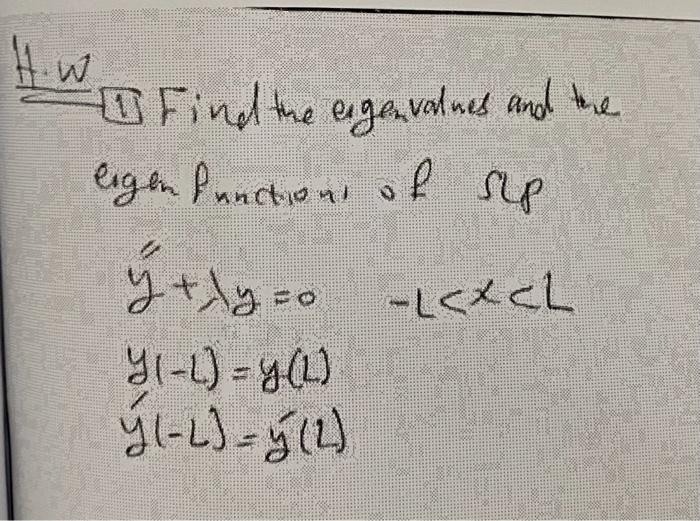 H.W
1 Find the eigenvalues and the
eigen functions of SLP
y'' + λy = 0   -L < x < L
y(-L) = y(L)
y'(-L) = y'(L)